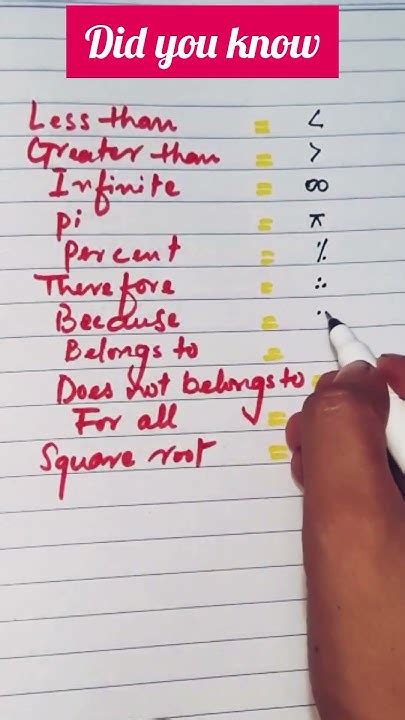 Did you know
Less than = <
Greater than = >
Infinite = ∞
pi = π
percent = %
Therefore = ∴
Beeduse =
Belongs to =
Does not belongs to =
For all =
Square root =